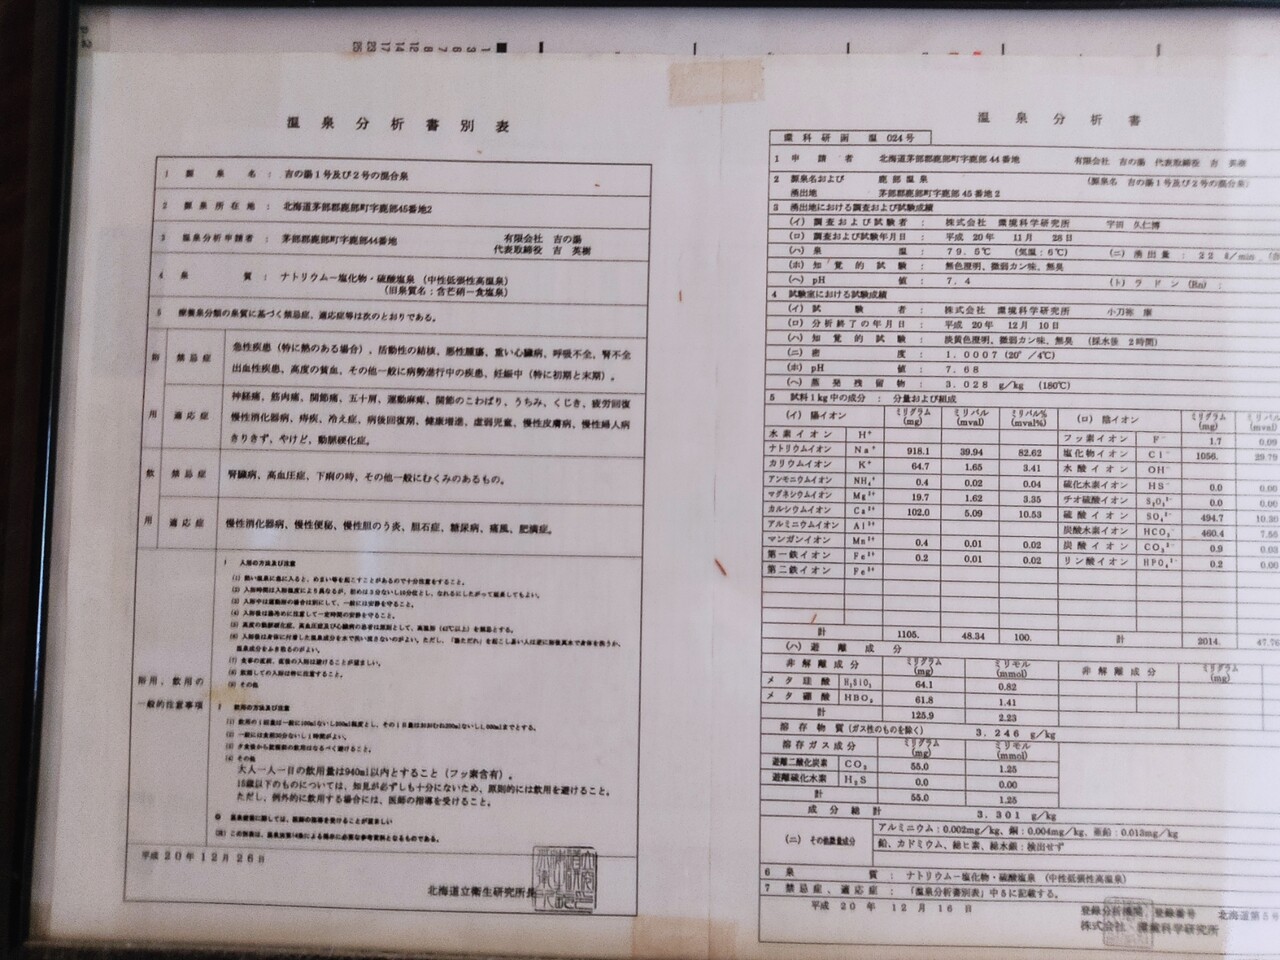 温泉分析書別表
1 源泉名： 吉の湯1号及び2号の混合泉
2 源泉所在地： 北海道茅部郡鹿部町字鹿部45番地2
3 温泉分析申請者： 茅部郡鹿部町字鹿部44番地 有限会社 吉の湯
代表取締役 吉 英樹
4 泉質： ナトリウム－塩化物・硫酸塩泉（中性低張性高温泉）
（旧泉質名：含芒硝－食塩泉）
5 療養泉分類の泉質に基づく禁忌症、適応症等は次のとおりである。
浴用
禁忌症
急性疾患（特に熱のある場合）、活動性の結核、悪性腫瘍、重い心臓病、呼吸不全、腎不全
出血性疾患、高度の貧血、その他一般に病勢進行中の疾患、妊娠中（特に初期と末期）。
適応症
神経痛、筋肉痛、関節痛、五十肩、運動麻痺、関節のこわばり、うちみ、くじき、疲労回復
慢性消化器病、痔疾、冷え症、病後回復期、健康増進、虚弱児童、慢性皮膚病、慢性婦人病
きりきず、やけど、動脈硬化症。
飲用
禁忌症
腎臓病、高血圧症、下痢の時、その他一般にむくみのあるもの。
適応症
慢性消化器病、慢性便秘、慢性胆のう炎、胆石症、糖尿病、痛風、肥満症。
浴用、飲用の
一般的注意事項
I 入浴の方法及び注意
(1) 熱い温泉に急に入ると、めまい等を起こすことがあるので十分注意をすること。
(3) 入浴中は運動浴の場合は別にして、一般には安静を守ること。
(4) 入浴後は湯冷めに注意して一定時間の安静を守ること。
(5) 高度の動脈硬化症、高血圧症及び心臓病の患者は原則として、高温浴（42℃以上）を禁忌とする。
温泉成分をふき取るのがよい。
(7) 食事の直前、直後の入浴は避けることが望ましい。
(8) 飲酒しての入浴は特に注意すること。
(9) その他
II 飲用の方法及び注意
(2) 一般には食前30分ないし1時間がよい。
(3) 夕食後から就寝前の飲用はなるべく避けること。
(4) その他
大人一人一日の飲用量は940ml以内とすること（フッ素含有）。
15歳以下のものについては、知見が必ずしも十分にないため、原則的には飲用を避けること。
ただし、例外的に飲用する場合には、医師の指導を受けること。
平成20年12月26日
北海道立衛生研究所長
温泉分析書
環科研函 温 024号
1 申請者 北海道茅部郡鹿部町字鹿部44番地 有限会社 吉の湯 代表取締役 吉 英樹
2 源泉名および 鹿部温泉 （源泉名 吉の湯1号及び2号の混合泉）
湧出地 茅部郡鹿部町字鹿部45番地2
3 湧出地における調査および試験成績
(イ) 調査および試験者： 株式会社 環境科学研究所 宇田 久仁博
(ロ) 調査および試験年月日： 平成 20年 11月 28日
(ハ) 泉温： 79.5℃ （気温：6℃） (ニ) 湧出量： 22 ℓ/min
(ホ) 知覚的試験： 無色澄明、微弱カン味、無臭
(ヘ) pH値： 7.4 (ト) ラドン（Rn）：
4 試験室における試験成績
(イ) 試験者： 株式会社 環境科学研究所
(ロ) 分析終了の年月日： 平成 20年 12月 10日
(ハ) 知覚的試験： 淡黄色澄明、微弱カン味、無臭 （採水後 2時間）
(ニ) 密度： 1.0007（20°/4℃）
(ホ) pH値： 7.68
(ヘ) 蒸発残留物： 3.028 g/kg （180℃）
5 試料1kg中の成分： 分量および組成
(イ) 陽イオン ミリグラム(mg) ミリバル(mval) ミリバル%(mval%) (ロ) 陰イオン ミリグラム(mg) ミリバル(mval)
水素イオン H⁺ フッ素イオン F⁻ 1.7 0.09
ナトリウムイオン Na⁺ 918.1 39.94 82.62 塩化物イオン Cl⁻ 1056. 29.79
カリウムイオン K⁺ 64.7 1.65 3.41 水酸イオン OH⁻
アンモニウムイオン NH₄⁺ 0.4 0.02 0.04 硫化水素イオン HS⁻ 0.0 0.00
マグネシウムイオン Mg²⁺ 19.7 1.62 3.35 チオ硫酸イオン S₂O₃²⁻ 0.0 0.00
カルシウムイオン Ca²⁺ 102.0 5.09 10.53 硫酸イオン SO₄²⁻ 494.7 10.30
アルミニウムイオン Al³⁺ 炭酸水素イオン HCO₃⁻ 460.4 7.55
マンガンイオン Mn²⁺ 0.4 0.01 0.02 炭酸イオン CO₃²⁻ 0.9 0.03
第一鉄イオン Fe²⁺ 0.2 0.01 0.02 リン酸イオン HPO₄²⁻ 0.2 0.00
第二鉄イオン Fe³⁺
計 1105. 48.34 100. 計 2014. 47.76
(ハ) 遊離成分
非解離成分 ミリグラム(mg) ミリモル(mmol) 非解離成分 ミリグラム(mg)
メタ珪酸 H₂SiO₃ 64.1 0.82
メタ硼酸 HBO₂ 61.8 1.41
計 125.9 2.23
溶存物質（ガス性のものを除く） 3.246 g/kg
溶存ガス成分 ミリグラム(mg) ミリモル(mmol)
遊離二酸化炭素 CO₂ 55.0 1.25
遊離硫化水素 H₂S 0.0 0.00
計 55.0 1.25
成分総計 3.301 g/kg
(ニ) その他微量成分 アルミニウム：0.002mg/kg、銅：0.004mg/kg、亜鉛：0.013mg/kg
鉛、カドミウム、総ヒ素、総水銀：検出せず
6 泉質： ナトリウム－塩化物・硫酸塩泉 （中性低張性高温泉）
7 禁忌症、適応症： 「温泉分析書別表」中5に記載する。
平成 20年 12月16日
登録分析機関 登録番号 北海道第5号
株式会社 環境科学研究所